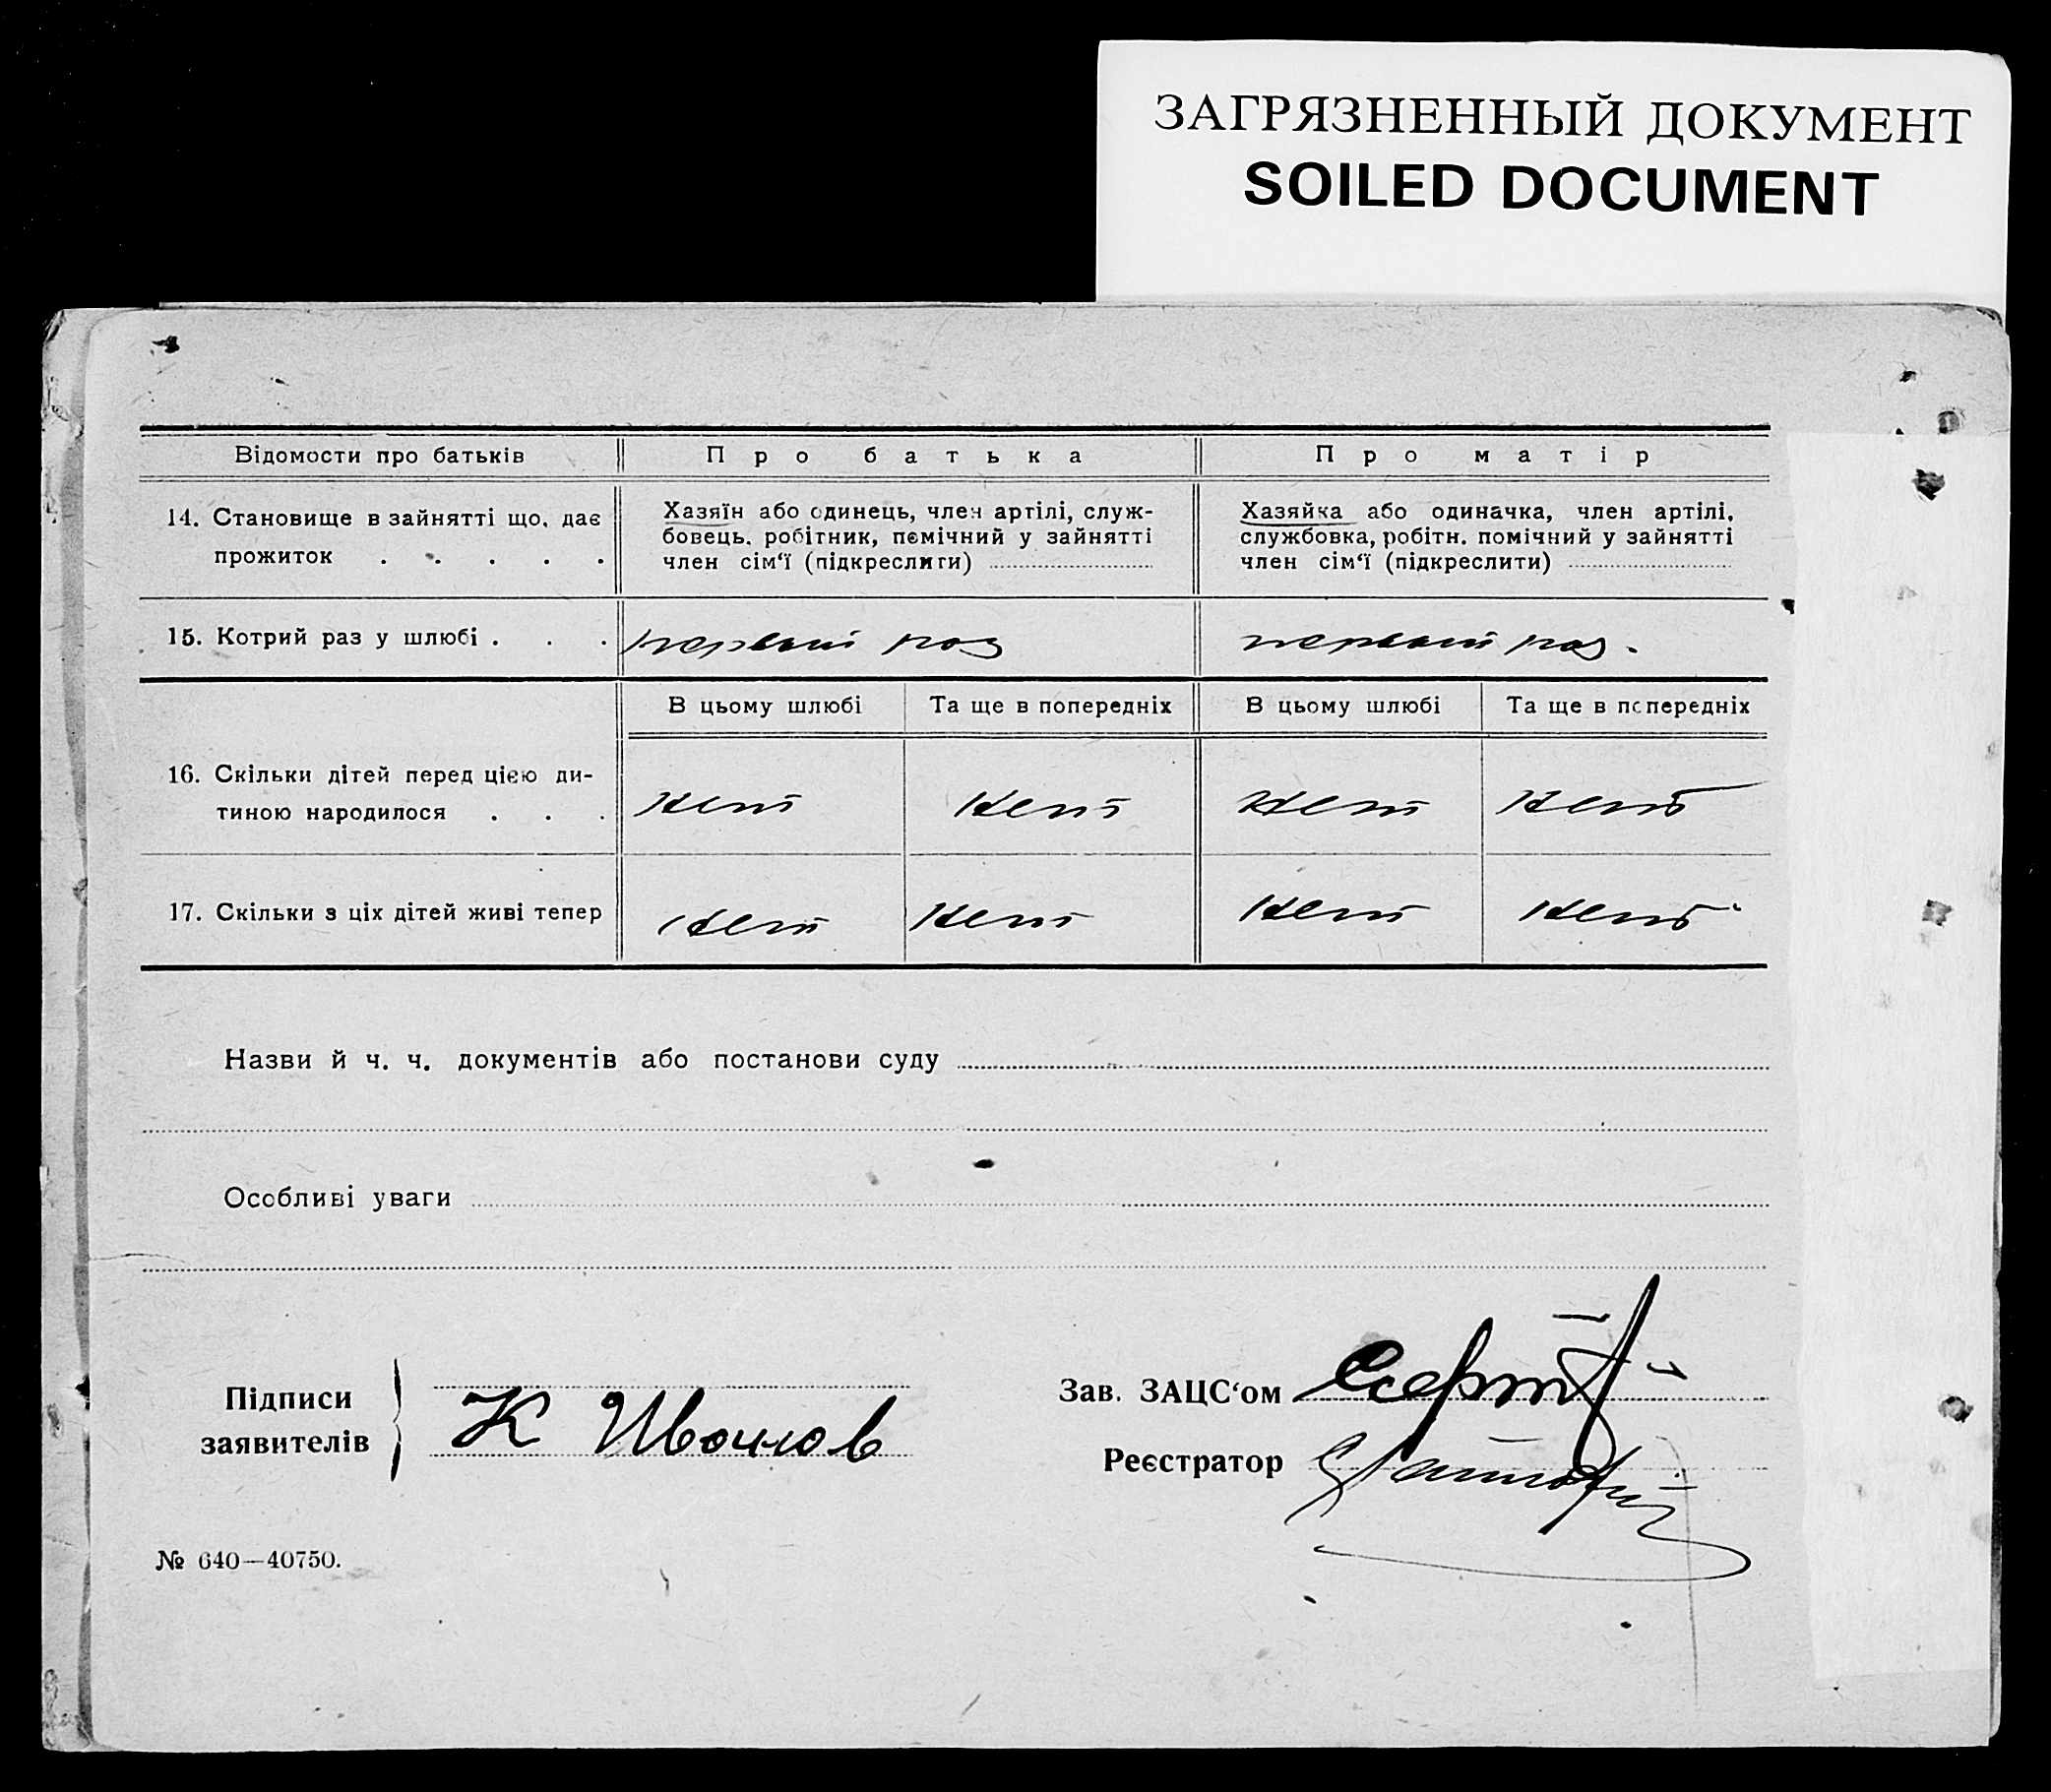 ЗАГРЯЗНЕННЫЙ ДОКУМЕНТ
SOILED DOCUMENT
Відомости про батьків
Про батька
Про матір
14. Становище в зайнятті що, дає
прожиток . . . . .
Хазяїн або одинець, член артілі, служ-
бовець, робітник, пємічний у зайнятті
член сім‘ї (підкреслити)
Хазяйка або одиначка, член артілі,
службовка, робітн. помічний у зайнятті
член сім‘ї (підкреслити)
15. Котрий раз у шлюбі . . .
первый раз
первый раз.
В цьому шлюбі
Та ще в попередніх
В цьому шлюбі
Та ще в попередніх
16. Скільки дітей перед цією ди-
тиною народилося . . .
Нет
Нет
Нет
Нет
17. Скільки з ціх дітей живі тепер
Нет
Нет
Нет
Нет
Назви й ч. ч. документів або постанови суду
Особливі уваги
Підписи
заявителів
К Ивочнов
Зав. ЗАЦС‘ом
Реєстратор
№ 640—40750.